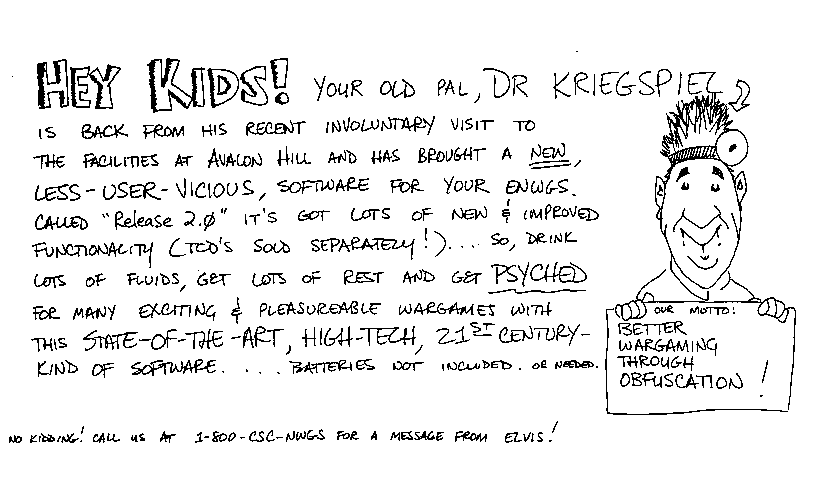 HEY KIDS! YOUR OLD PAL, DR KRIEGSPIEL
IS BACK FROM HIS RECENT INVOLUNTARY VISIT TO
THE FACILITIES AT AVALON HILL AND HAS BROUGHT A NEW,
LESS-USER-VICIOUS, SOFTWARE FOR YOUR ENWGS.
CALLED "Release 2.0" IT'S GOT LOTS OF NEW & IMPROVED
FUNCTIONALITY (TCD'S SOLD SEPARATELY!).... SO, DRINK
LOTS OF FLUIDS, GET LOTS OF REST AND GET PSYCHED
FOR MANY EXCITING & PLEASUREABLE WARGAMES WITH
THIS STATE-OF-THE-ART, HIGH-TECH, 21ST CENTURY-
KIND OF SOFTWARE. . . . . BATTERIES NOT INCLUDED. OR NEEDED.
OUR MOTTO:
BETTER
WARGAMING
THROUGH
OBFUSCATION!
NO KIDDING! CALL US AT 1-800-CSC-NWGS FOR A MESSAGE FROM ELVIS!